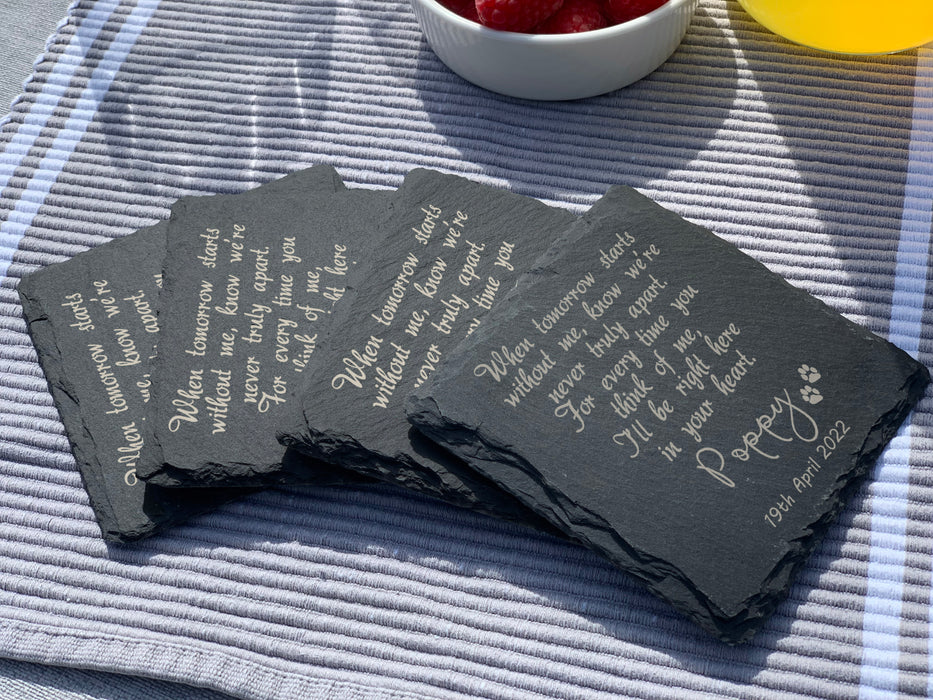 When tomorrow starts
without me, know we're
never truly apart.
For every time you
think of me,
I'll be right here
in your heart.
Poppy
19th April 2022
When tomorrow starts
without me, know we're
never truly apart.
time you
When tomorrow starts
without me, know we're
never truly apart.
For every time you
think of me,
here
When tomorrow starts
me, know we're
apart